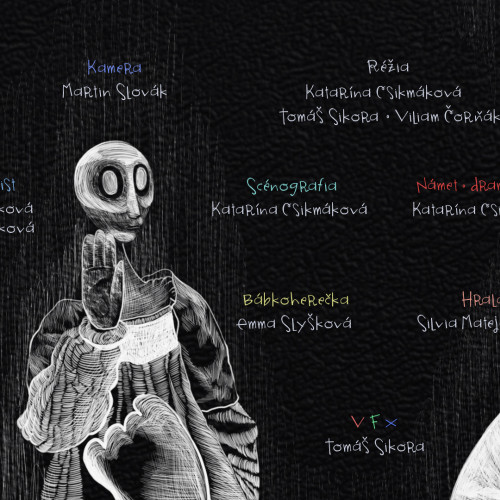 Kamera
Martin Slovák
Réžia
Katarína Csikmáková
Tomáš Sikora · Viliam Čorňák
Scénografia
Katarína Csikmáková
Námet ·
Katarína
Bábkoherečka
Emma Slyšková
Silvia
VFX
Tomáš Sikora